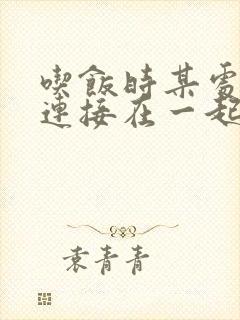 喫飯時某處
連接在一起
袁青青